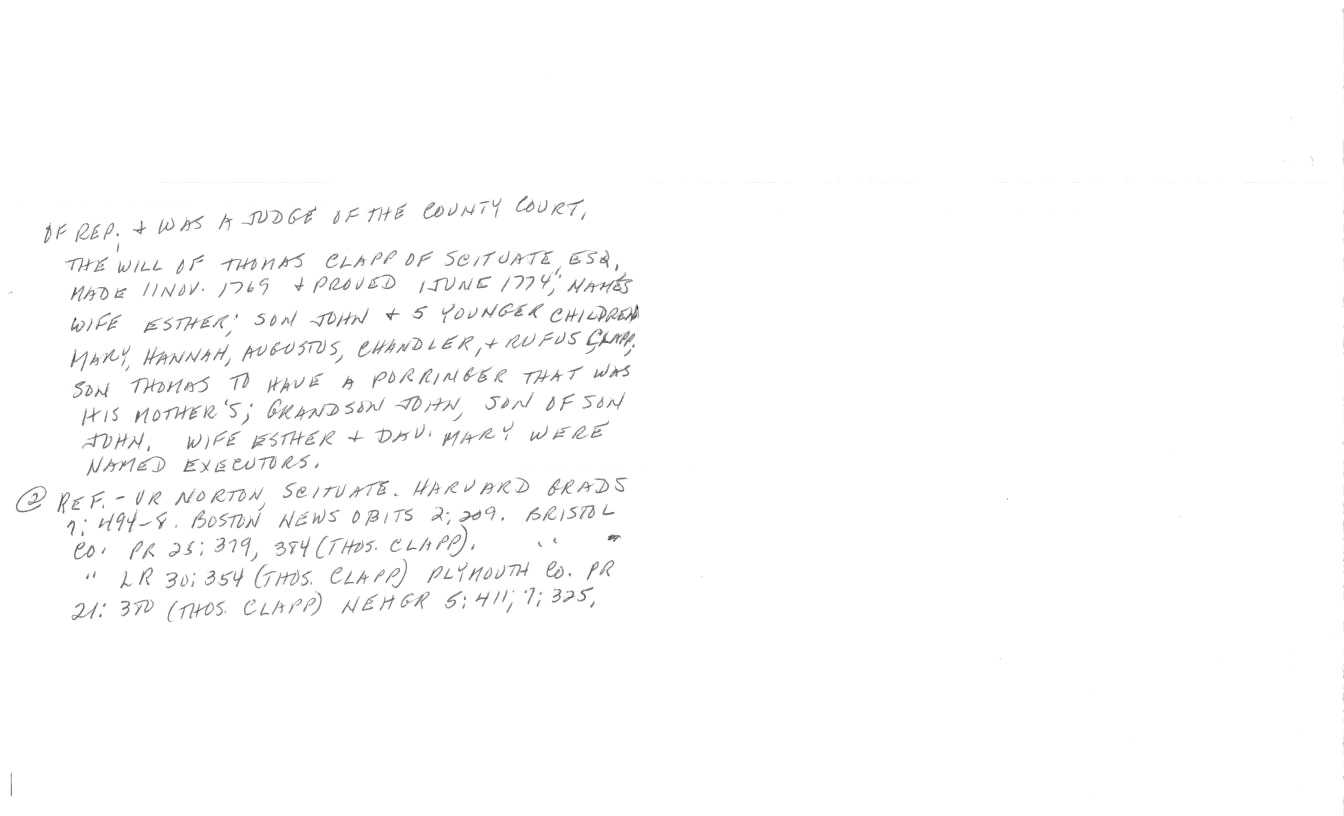 OF REP. & WAS A JUDGE OF THE COUNTY COURT.
THE WILL OF THOMAS CLAPP OF SCITUATE, ESQ,
MADE 11 NOV. 1769 & PROVED 1 JUNE 1774, NAMES
WIFE ESTHER; SON JOHN & 5 YOUNGER CHILDREN
MARY, HANNAH, AUGUSTUS, CHANDLER, & RUFUS CLAPP;
SON THOMAS TO HAVE A PORRINGER THAT WAS
HIS MOTHER'S; GRANDSON JOHN, SON OF SON
JOHN. WIFE ESTHER & DAU. MARY WERE
NAMED EXECUTORS.
② REF. - VR NORTON, SCITUATE. HARVARD GRADS
7: 494-8. BOSTON NEWS OBITS 2; 209. BRISTOL
CO. PR 25: 379, 384 (THOS. CLAPP). "
" LR 30; 354 (THOS. CLAPP) PLYMOUTH CO. PR
21: 350 (THOS. CLAPP) NEHGR 5: 411; 7; 325,